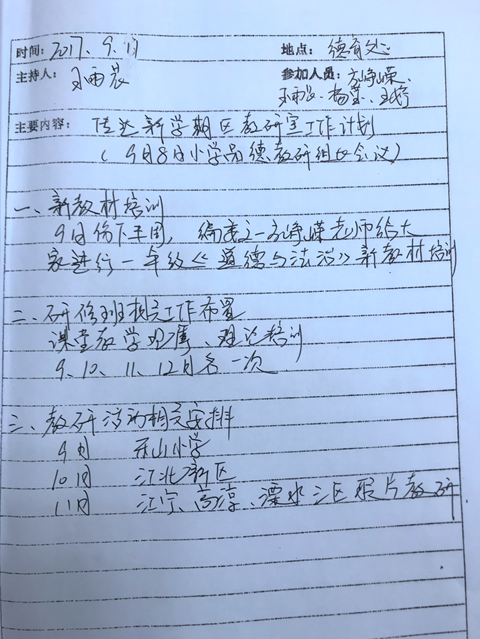 时间：2017、9、19 地点：德育处
主持人：王雨晨 参加人员：方峥嵘、
王雨晨、杨莹、王婷
主要内容：传达新学期区教研室工作计划
（9月8日小学品德教研组长会议）
一、新教材培训
9月份下半周，编委之一方峥嵘老师给大
家进行一年级《道德与法治》新教材培训
二、研修班相关工作布置
课堂教学观摩、理论培训
9、10、11、12月各一次
三、教研活动相关安排
9月 东山小学
10月 江北新区
11月 江宁、高淳、溧水三区联片教研